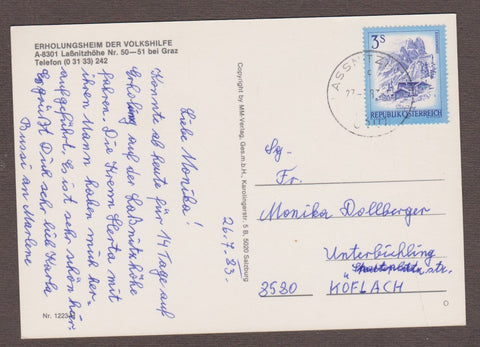 ERHOLUNGSHEIM DER VOLKSHILFE
A-8301 Laßnitzhöhe Nr. 50—51 bei Graz
Telefon (0 31 33) 242
26.7.83.
Liebe Monika!
Konnte ab heute für 14 Tage auf
Erholung auf der Laßnitzhöhe
fahren. Die Herta mit
ihren Mann haben mich her-
aufgeführt. Es ist sehr schön hier.
Es grüßt Dich sehr lieb
Bussi an Marlene
Nr. 1223
Copyright by MM-Verlag, Ges.m.b.H., Karolingerstr. 5 B, 5020 Salzburg
3S
REPUBLIK ÖSTERREICH
Fr.
Monika Dollberger
Unterbüchling
str.
8580 KÖFLACH